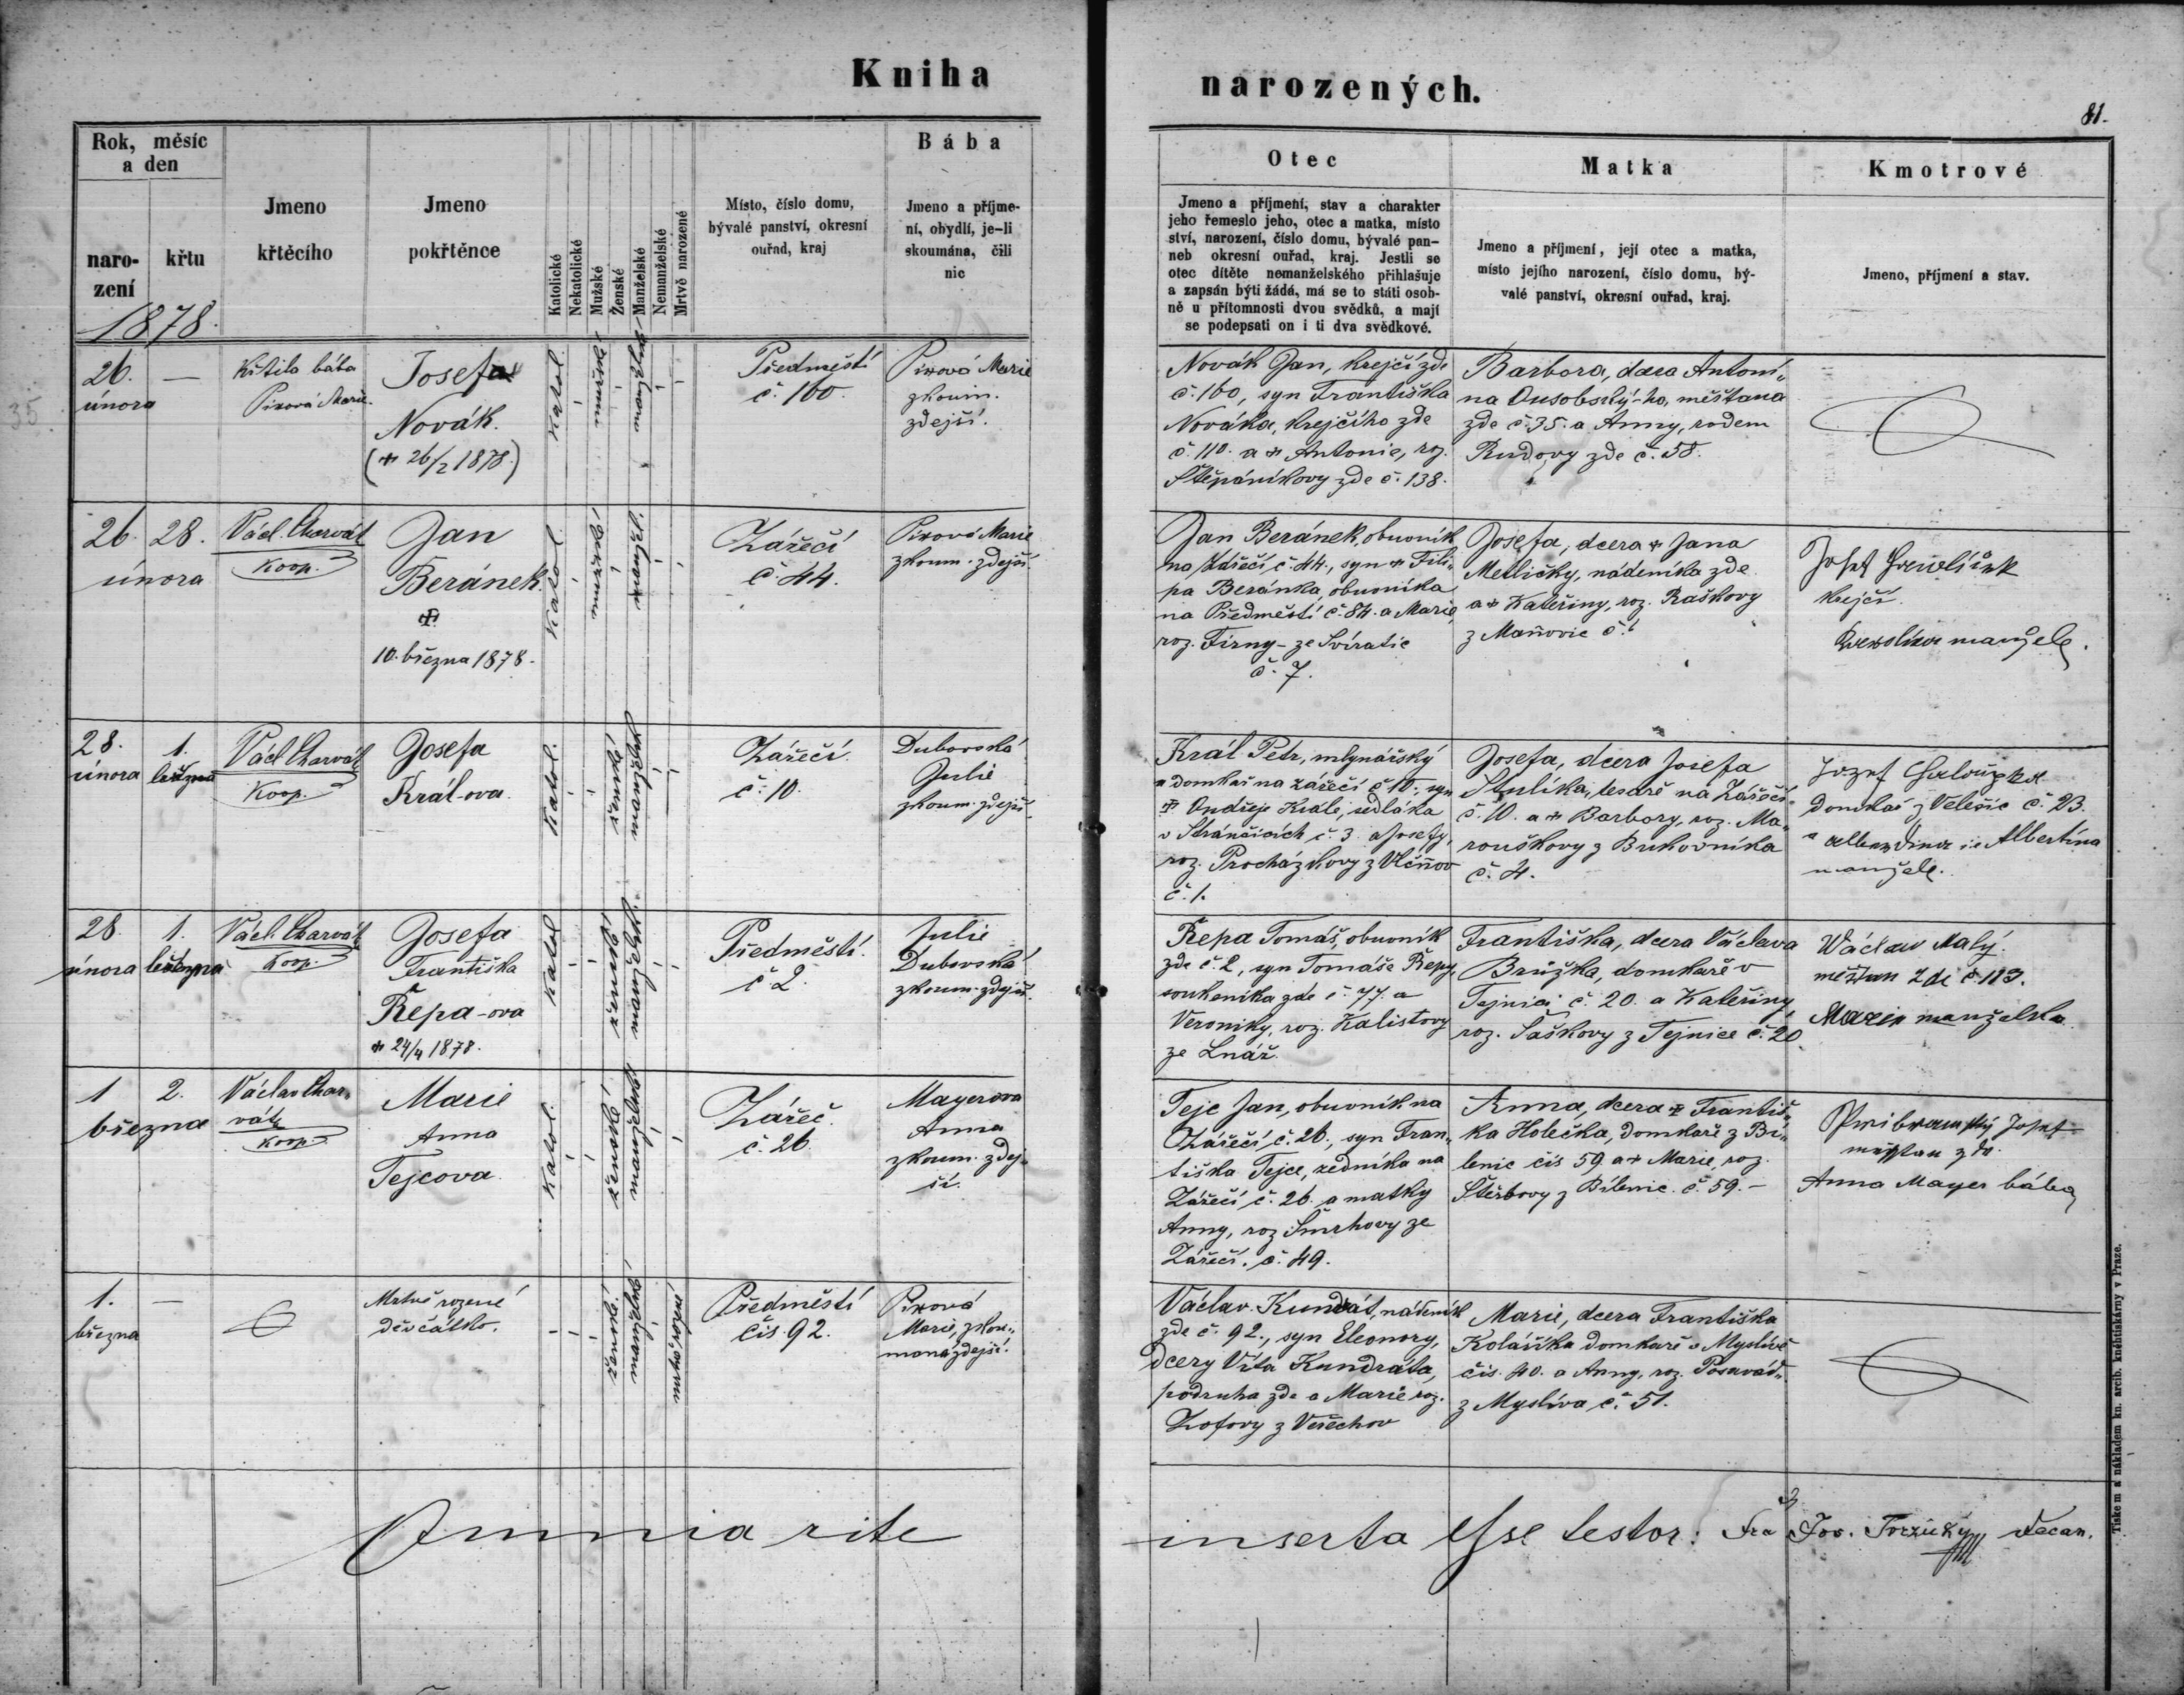 Kniha
narozených.
81.
Rok, měsíc
a den
naro-
zení
křtu
1878.
Jmeno
křtěcího
Jmeno
pokřtěnce
Katolické
Nekatolické
Mužské
Ženské
Manželské
Nemanželské
Mrtvě narozené
Místo, číslo domu,
bývalé panství, okresní
ouřad, kraj
Bába
Jmeno a příjme-
ní, obydlí, je-li
skoumána, čili
nic
Otec
Jmeno a příjmení, stav a charakter
jeho řemeslo jeho, otec a matka, místo
ství, narození, číslo domu, bývalé pan-
neb okresní ouřad, kraj. Jestli se
otec dítěte nemanželského přihlašuje
a zapsán býti žádá, má se to státi osob-
ně u přítomnosti dvou svědků, a mají
se podepsati on i ti dva svědkové.
Matka
Jmeno a příjmení, její otec a matka,
místo jejího narození, číslo domu, bý-
valé panství, okresní ouřad, kraj.
Kmotrové
Jmeno, příjmení a stav.
35.
26.
února
—
Křtila bába
Pixová Marie.
Josef
Novák.
(+ 26/2 1878.)
Katol.
mužské
manželské
Předměstí
č. 160.
Pixová Marie
zkoum.
zdejší.
Novák Jan, krejčí zde
č. 160, syn Františka
Nováka, krejčího zde
č. 110. a + Antonie, roz.
Štěpánikovy zde č. 138.
Barbora, dcera Antoni„
na Dusobský-ho, měšťana
zde č. 35. a Anny, rodem
Rudovy zde č. 58.
26. 28.
února
Václ. Charvát
Koop.
Jan
Beránek.
+
10. března 1878.
Katol
mužské
manžel.
Zářečí
č. 44.
Pixová Marie
zkoum. zdejší
Jan Beránek, obuvník
na Zářečí č. 44., syn + Fili„
pa Beránka, obuvníka
na Předměstí č. 84. a Marie,
roz. Firny - ze Svíratic
č. 7.
Josefa, dcera + Jana
Metličky, nádeníka zde
a + Kateřiny, roz. Raškovy
z Maňovic č.
Josef
krejčí.
manžele.
28.
února
1.
března
Václ. Charvát
Koop.
Josefa
Král-ova.
Katol.
ženské
manželské
Zářečí.
č. 10.
Duborská
Julie
zkoum. zdejší.
Král Petr, mlynářský
a domkař na Zářečí č. 10., syn
+ Ondřeje Krále, sedláka
v Stránčicích č. 3. a Josefy,
roz. Procházkovy z Vlčňov
č. 1.
Josefa, dcera Josefa
Stulíka, tesaře na Zářečí
č. 10. a + Barbory, roz. Ma„
rouškovy z Bukovníka
č. 4.
Jozef Chaloupka
Domkař z Velešic č. 23.
Albertina
manžele.
28.
února
1.
března
Václ. Charvát
Koop.
Josefa
Františka
Řepa-ova
+ 24/4 1878.
Katol
ženské
manželsk.
Předměstí.
č 2.
Julie
Duborská
zkoum. zdejší.
Řepa Tomáš, obuvník
zde č. 2, syn Tomáše Řepy,
soukeníka zde č. 77. a
Veroniky, roz. Kalistovy
ze Lnář.
Františka, dcera Václava
Brůžka, domkaře v
Tejnici č. 20. a Kateřiny
roz. Šaškovy z Tejnice č. 20.
Wáclav Malý.
měšťan zde č 183.
Marie manželka
1 2.
března
Václav Char„
vát,
Koop.
Marie
Anna
Tejcova.
Katol.
ženské
manželské
Zářeč.
č. 26.
Mayerova
Anna
zkoum. zdej„
ší.
Tejc Jan, obuvník na
Zářečí č. 26., syn Fran„
tiška Tejce, zedníka na
Zářečí č. 26. a matky
Anny, roz. Šmrhovy ze
Zářečí. č. 49.
Anna, dcera + Františ„
ka Holečka, domkaře z Bí„
lenic čís 59. a + Marie, roz.
Štěrbovy z Bílenic. č. 59. -
Přibramský Josef
měšťan zde.
Anna Mayer bába
1.
března
—
Mrtvě rozené
děvčátko.
ženské.
manželské
mrtvě rozené
Předměstí
čís. 92.
Pixová
Marie, zkou„
maná zdejší.
Václav Kundrát, nádeník
zde č. 92., syn Eleonory,
dcery Víta Kundráta,
podruha zde a Marie roz.
Zofovy z Veřechov
Marie, dcera Františka
Kolaříka domkaře v Myslívě
čís. 40. a Anny, roz. Posavád„
z Myslíva č. 51.
Omnia rite
inserta esse testor: Fra Jos. Děcan.
Tiskem a nákladem kn. arcib. knihtiskárny v Praze.